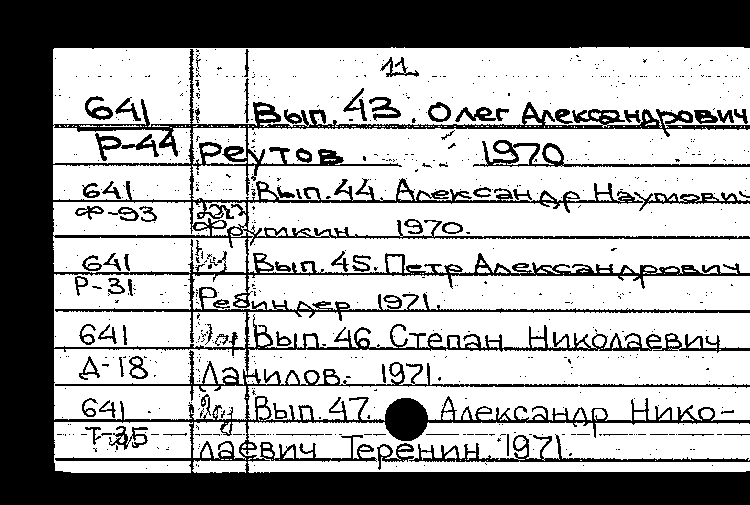 11
641 Вып. 43. Олег Александрович
Р-44 Реутов. 1970
641 Вып. 44. Александр Наумович
Ф-93 Фрумкин. 1970.
641 Вып. 45. Петр Александрович
Р-31 Ребиндер 1971.
641 Вып. 46. Степан Николаевич
Д-18 Данилов. 1971.
641 Вып. 47. Александр Нико-
Т-35 лаевич Теренин. 1971.